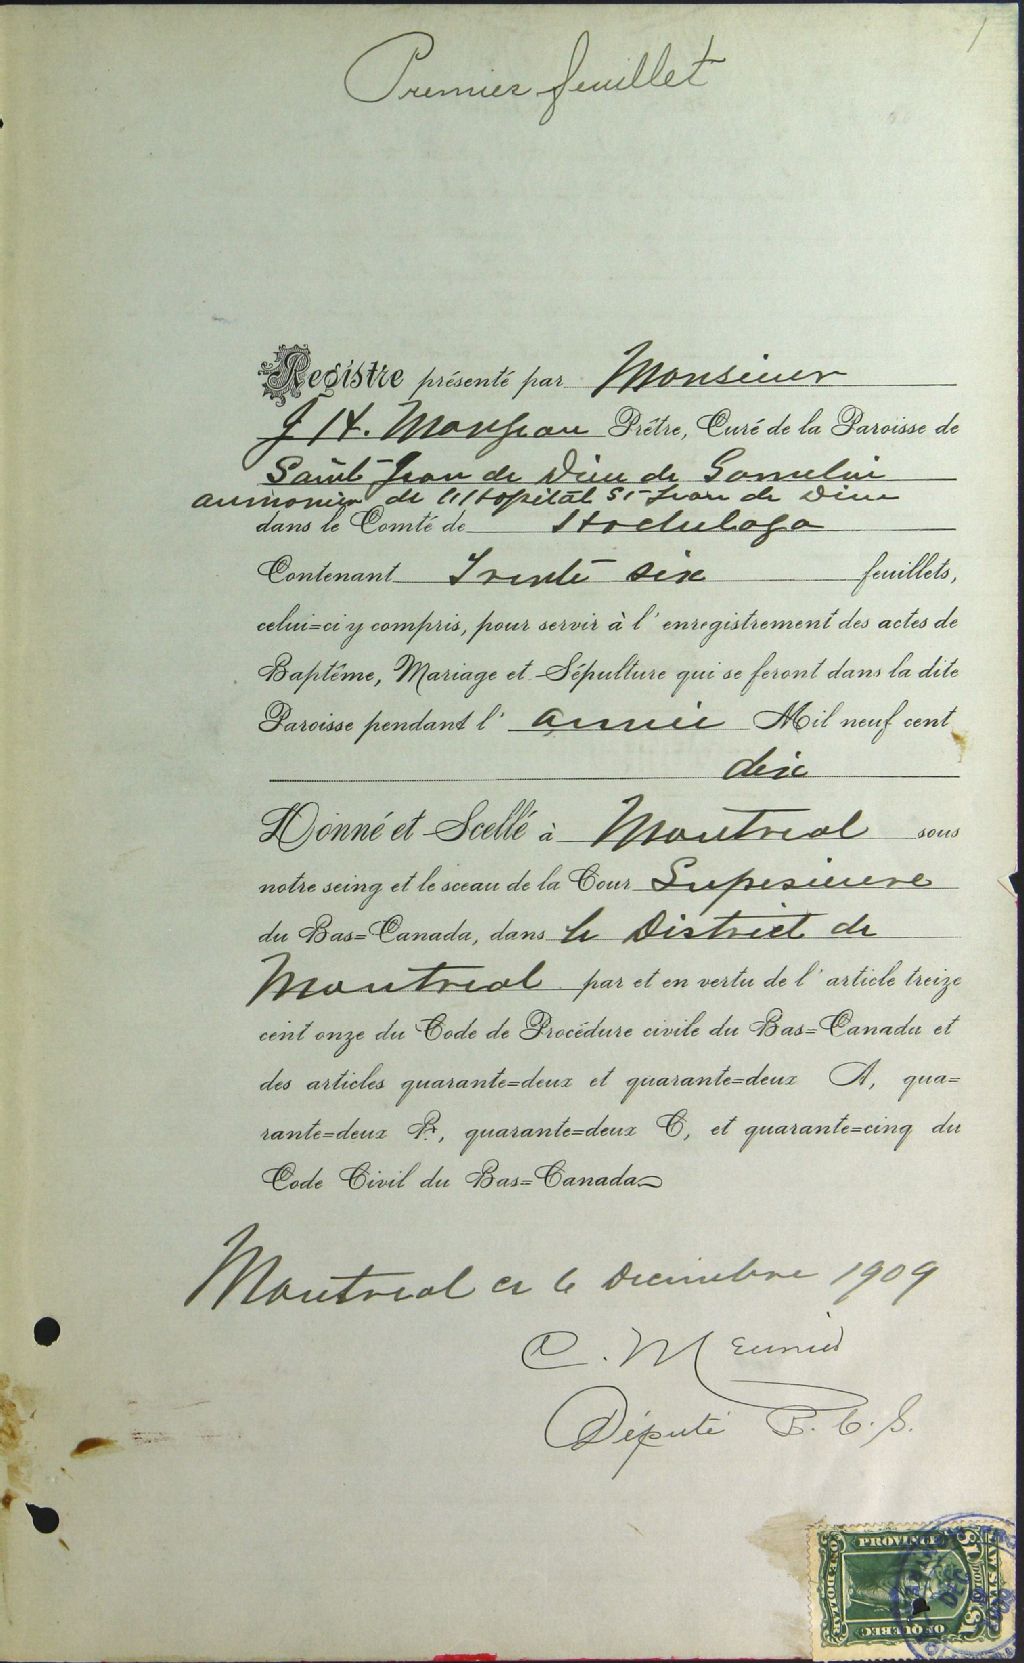 1
Premier feuillet
Registre présenté par Monsieur
J H. Prêtre, Curé de la Paroisse de
Saint Jean de Dieu de Gamelin
aumonier de l'Hopital St Jean de Dieu
dans le Comté de Hochelaga
Contenant Trente six feuillets,
celui=ci y compris, pour servir à l'enregistrement des actes de
Baptême, Mariage et Sépulture qui se feront dans la dite
Paroisse pendant l'année Mil neuf cent
dix
Donné et Scellé à Montreal sous
notre seing et le sceau de la Cour Superieure
du Bas=Canada, dans le District de
Montreal par et en vertu de l'article treize
cent onze du Code de Procédure civile du Bas=Canada et
des articles quarante=deux et quarante=deux A, qua=
rante=deux B, quarante=deux C, et quarante=cinq du
Code Civil du Bas=Canada
Montreal ce 6 Decembre 1909
C. Meunier
Député P. C. S.
PROVINCE
$1
LAW STAMP
ONE DOLLAR
OF QUEBEC
$1
DEC